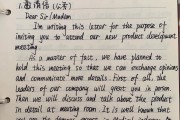 邀请信(公务)
Dear Sir/Madam
I'm writing this letter for the purpose of
inviting you to attend our new product development
meeting.
As a matter of fact, we have planned to
hold this meeting so that we can exchange opinions
and communicate more details. First of all, the
leaders of our company will great you in person.
Then we will discuss and talk about the product
in detail at meeting room. It is well known that
you are the